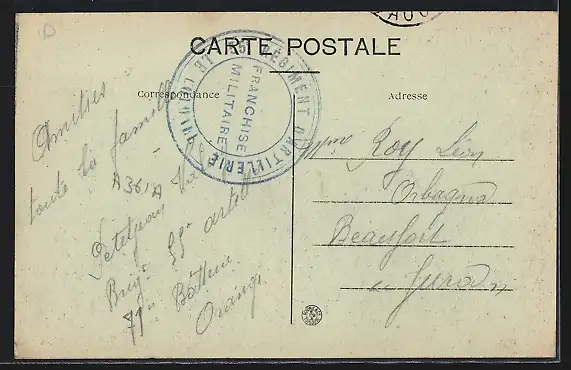 D
CARTE POSTALE
Correspondance
Adresse
RÉGIMENT D'ARTILLERIE
FRANCHISE
MILITAIRE
Amitiés à
toute la famille
A 361A
Petitjean
Brigr 55e artill
71e Batterie
Orange
Mme Roy Léon
Orbagna
Beaufort
Jura